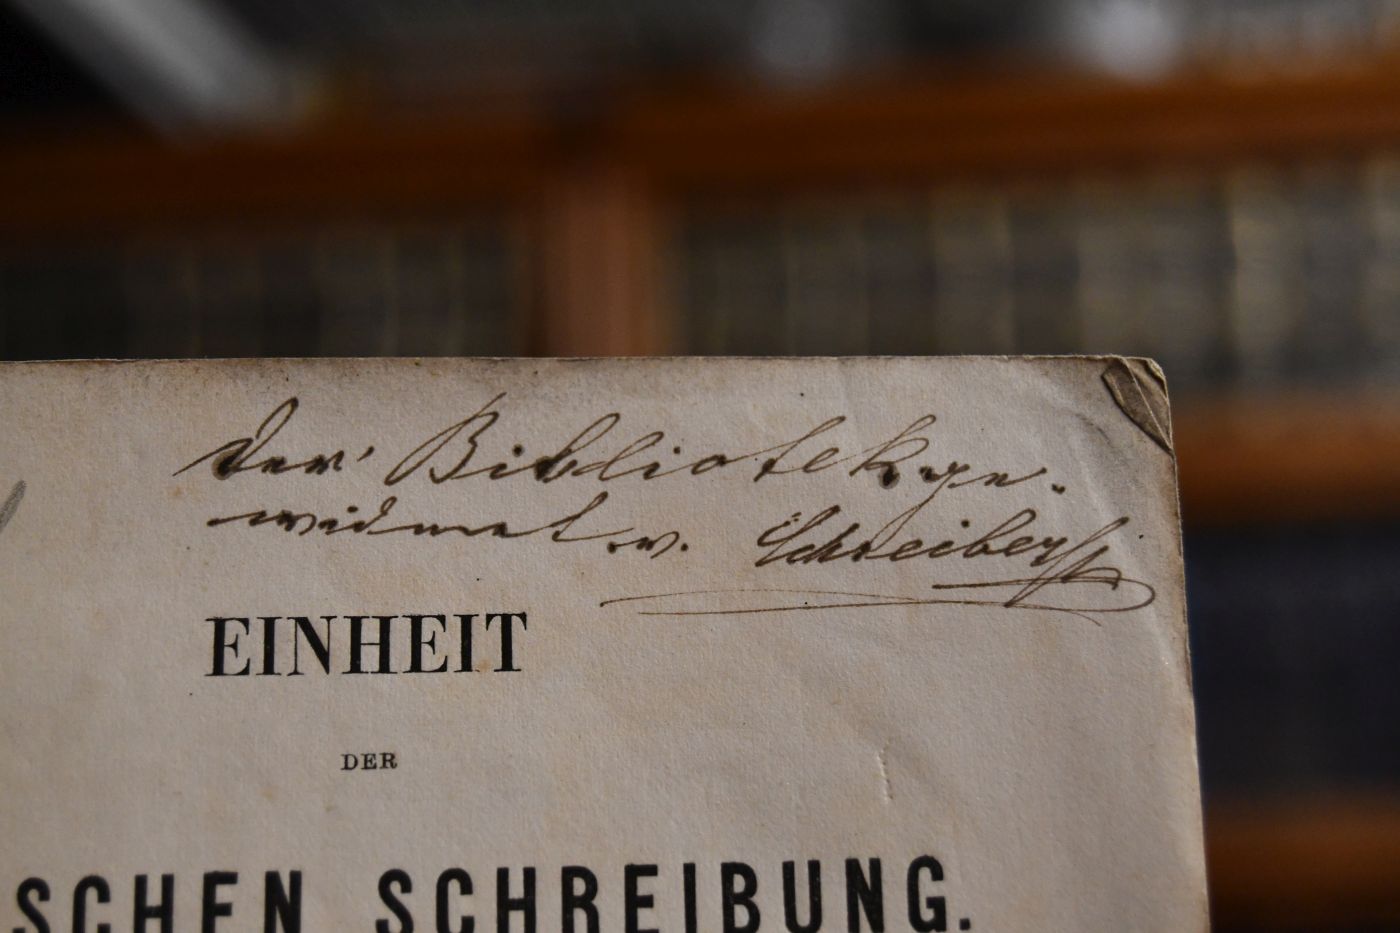 der Bibliotek ge-
widmet v. Schreiber
EINHEIT
DER
SCHEN SCHREIBUNG.